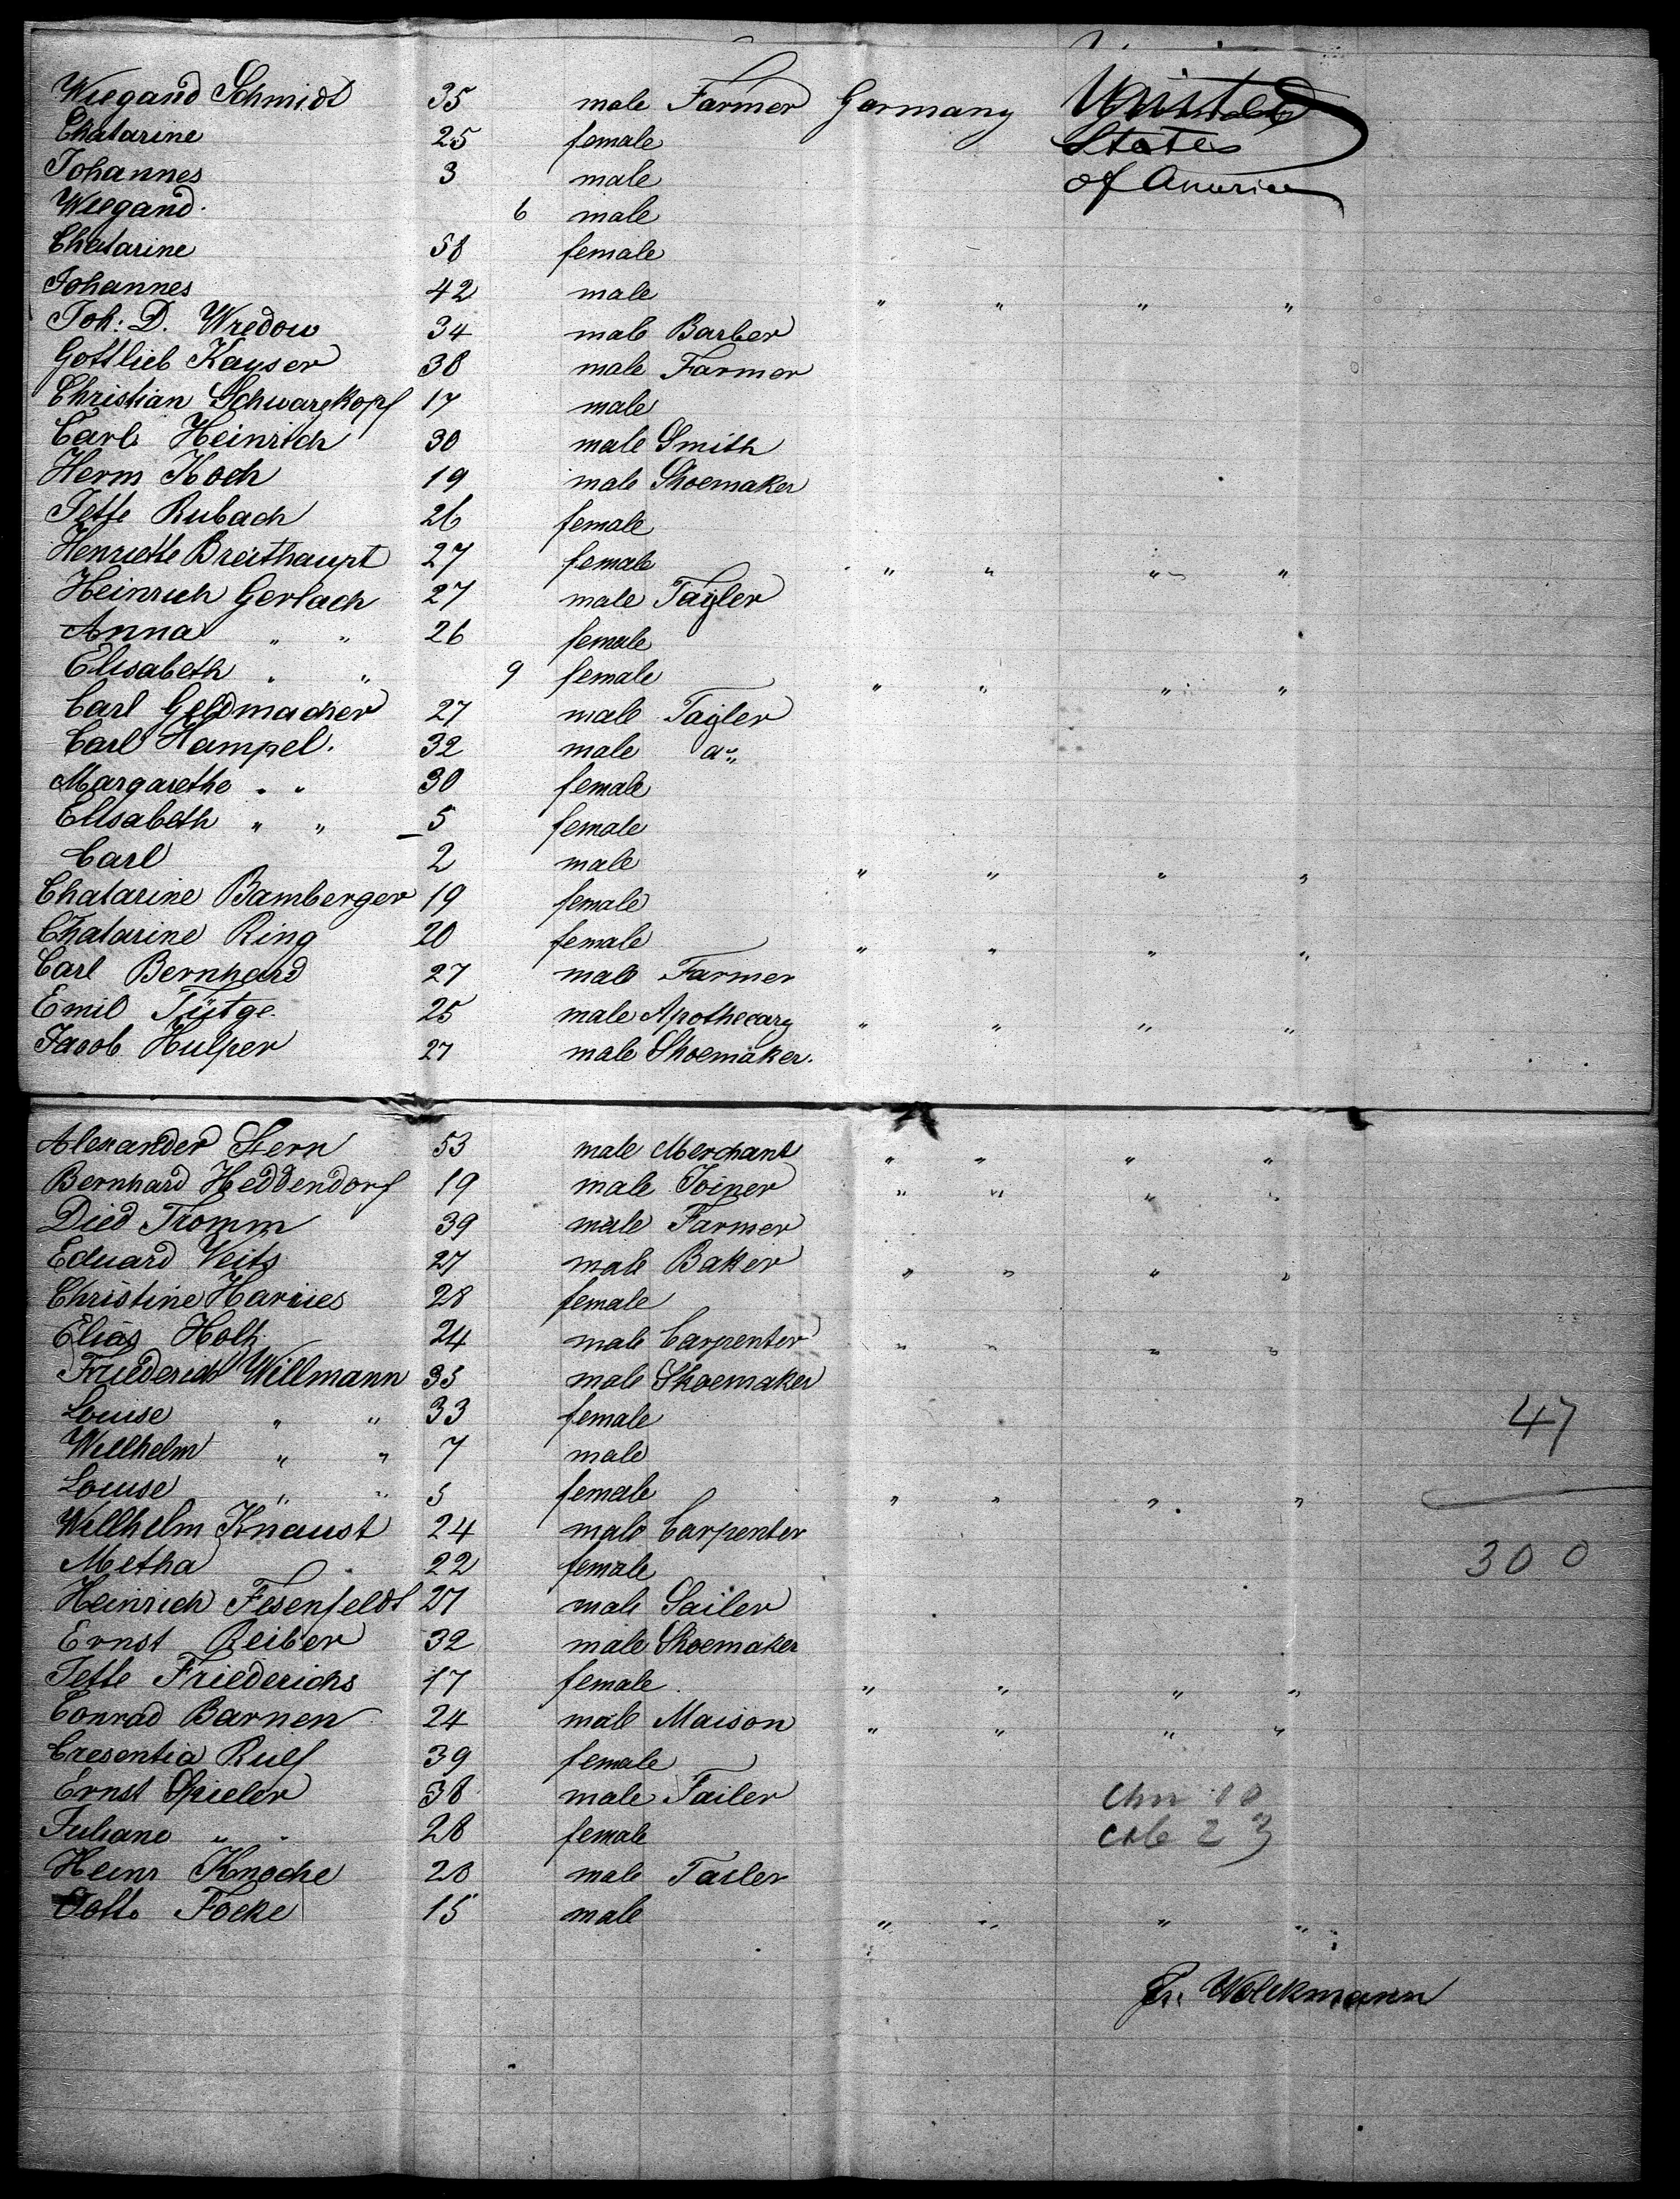 Wiegand Schmidt 35 male Farmer Germany United
Chatarine 25 female States
Johannes 3 male of America
Wiegand. 6 male
Chatarine 58 female
Johannes 42 male " " " "
Joh: D. Wredow 34 male Barber
Gottlieb Kayser 38 male Farmer
Christian Schwarzkopf 17 male
Carl Heinrich 30 male Smith
Herm Koch 19 male Shoemaker
Jette Rubach 26 female
Henriette Breithaupt 27 female " " " "
Heinrich Gerlach 27 male Tayler
Anna " " 26 female
Elisabeth " " 9 female " " " "
Carl Geldmacher 27 male Tayler
Carl Hampel. 32 male a "
Margarethe " " 30 female
Elisabeth " " 5 female
Carl 2 male " " " "
Chatarine Bamberger 19 female
Chatarine Ring 20 female " " " "
Carl Bernhard 27 male Farmer
Emil Tütge. 25 male Apothecary " " " "
Jacob Hulper 27 male Shoemaker.
Alexander Stern 53 male Merchant " " " "
Bernhard Heddendorf 19 male Joiner " " " "
Died Tromm 39 male Farmer
Eduard Veits 27 male Baker " " " "
Christine Harries 28 female
Elias Holtz 24 male Carpenter " " " "
Friederich Willmann 35 male Shoemaker
Louise " " 33 female 47
Willhelm " " 7 male
Louise " " 5 female " " " "
Willhelm Knaust 24 male Carpenter
Metha 22 female 300
Heinrich Fesenfeldt 27 male Sailer
Ernst Reiber 32 male Shoemaker
Jette Friederichs 17 female " " " "
Conrad Barnen 24 male Maison " " " "
Cresentia Ruef 39 female
Ernst Spieler 38 male Tailer Chn 18
Juliane " " 28 female cab 23
Heinr Knoche 28 male Tailer
Otto Focke 15 male " " " "
Fr. Wolckmann